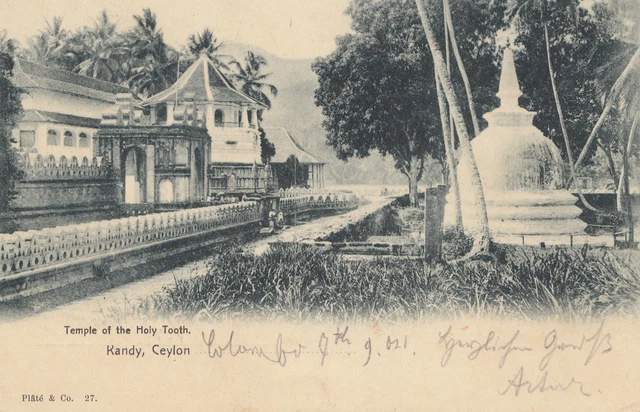 Temple of the Holy Tooth.
Kandy, Ceylon Colombo 9. 01. Herzlichen Gruß
Artur.
Plâté & Co. 27.